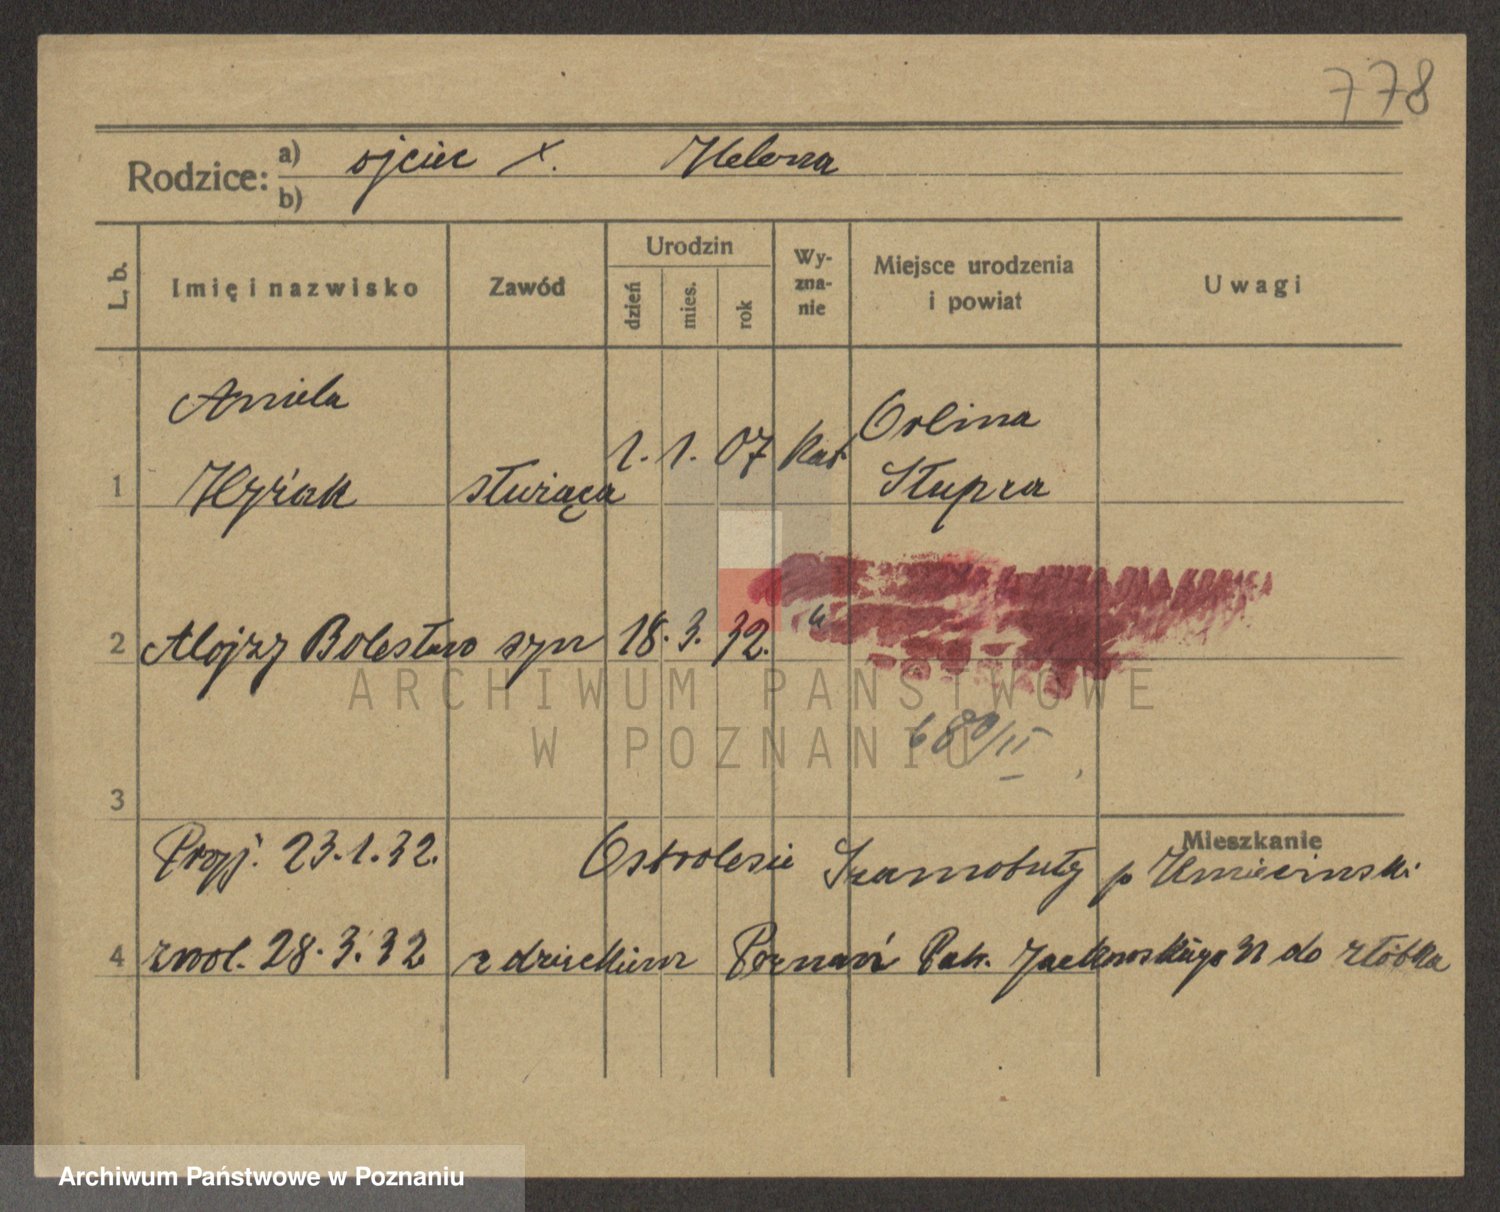 778
Rodzice: a) ojciec X. Helena
b)
L. b. Imię i nazwisko Zawód Urodzin dzień mies. rok Wy-zna-nie Miejsce urodzenia i powiat Uwagi
Aniela
1 służąca 1. 1. 07 kat. Orlina
Słupca
2 Alojzy Bolesław syn 18. 3. 32. "
680/II
3
Mieszkanie
Przyj. 23.1.32. Ostrolesie Szamotuły p Kmiecinski
4 zwol. 28.3.32 z dzieckiem Poznań Patr. Jackowskiego 31 do żłóbka
ARCHIWUM PAŃSTWOWE
W POZNANIU
Archiwum Państwowe w Poznaniu